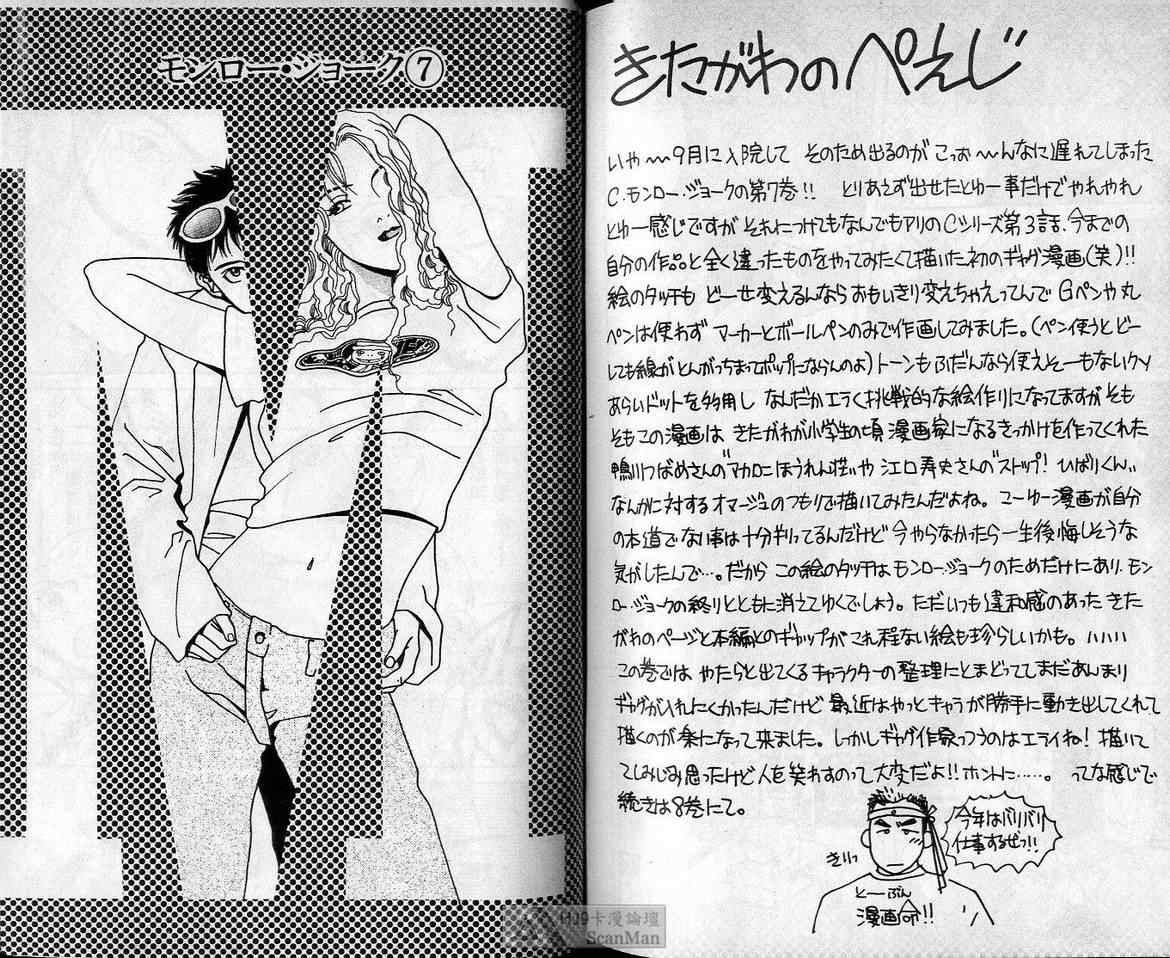 モンロー・ジョーク⑦
きたがわのぺえじ
いや〜〜9月に入院して そのため出るのが こっお〜〜んなに遅れてしまった
C.モンロー・ジョークの第7巻!! とりあえず出せたとゆー事だけでやれやれ
とゆー感じですが それにつけてもなんでもアリのCシリーズ第3話、今までの
自分の作品と全く違ったものをやってみたくて描いた初のギャグ漫画(笑)!!
絵のタッチも どーせ変えるんならおもいきり変えちゃえってんで Gペンや丸
ペンは使わず マーカーとボールペンのみで作画してみました。(ペン使うと どー
しても線がとんがっちまってポップにならんのよ)トーンもふだんなら使えそーもないクソ
あらいドットを多用し なんだかエラく挑戦的な絵作りになってますが そも
そもこの漫画は きたがわが小学生の頃 漫画家になるきっかけを作ってくれた
鴨川つばめさんの"マカロニほうれん荘"や 江口寿史さんの"ストップ!ひばりくん"
なんかに対するオマージュのつもりで描いてみたんだよね。こーゆー漫画が自分
の本道でない事は十分判ってるんだけど 今やらなかったら一生後悔しそうな
気がしたんで…。だから この絵のタッチは モンロー・ジョークのためだけにあり、モン
ロー・ジョークの終りとともに消えてゆくでしょう。ただいつも違和感のあった きた
がわのページと本編とのギャップが これ程ない絵も珍らしいかも。ハハハハ
この巻では やたらと出てくるキャラクターの整理にとまどってて まだあんまり
ギャグが入れにくかったんだけど 最近はやっとキャラが勝手に動き出してくれて
描くのが楽になって来ました。しかしギャグ作家っつうのはエライね!描いて
てしみじみ思ったけど人を笑わすのって大変だよ!!ホントに……。 ってな感じで
続きは8巻にて。
今年はバリバリ
仕事するぜっ!!
きりっ
とーぶん
漫画命!!
HJ9卡漫論壇
ScanMan